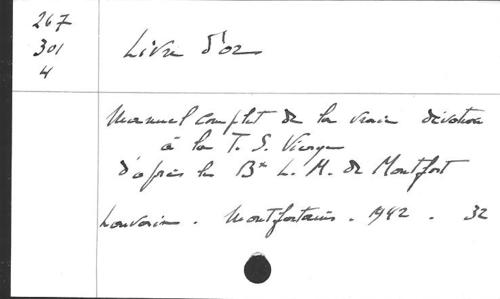 267
301
4
Livre d'or
Manuel complet de la vraie dévotion
à la T. S. Vierge
d'après le Bx L. M. de Montfort
Louvain. Montfortains. 1942. 32